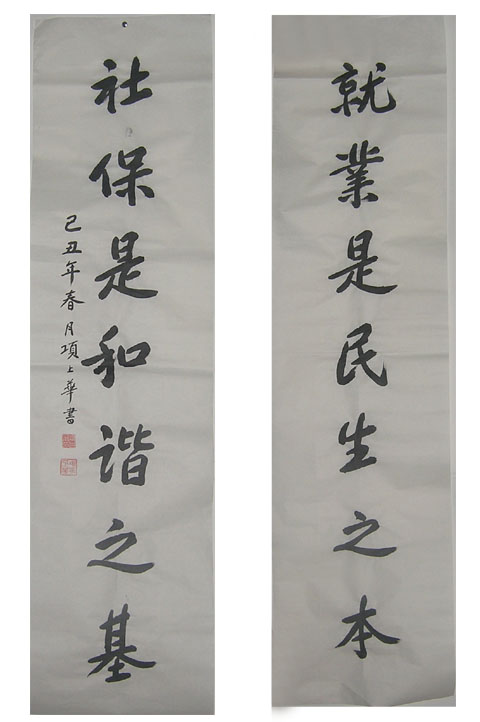 就業是民生之本
社保是和谐之基
己丑年春月項上華書